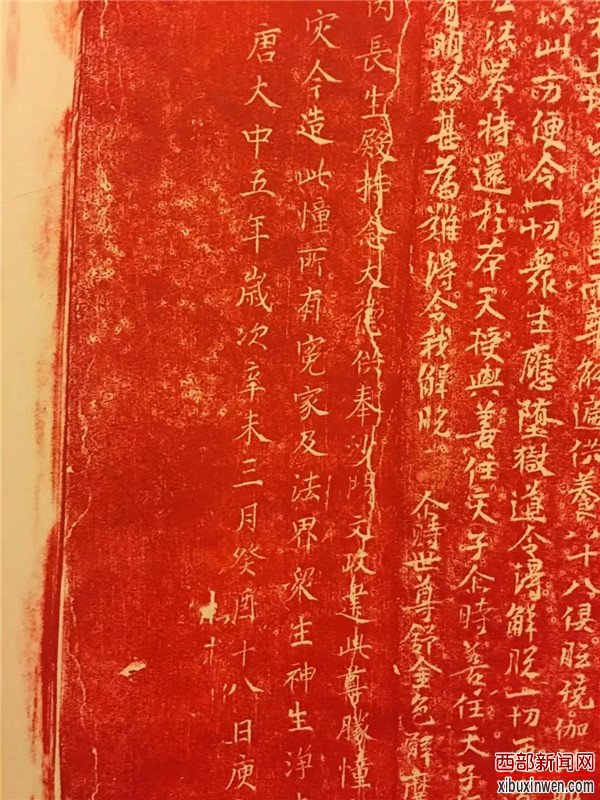 遍供養八十八俱胝殑伽
此方便令一切衆生應墮獄道令得解脫一切
法已特還於本天授與善住天子尒時善住天子
有明驗甚為難得令我解脫 尒時世尊舒金色臂摩
內長生殿持念大德供奉沙門文政建此尊勝幢
灾今造此幢所有寃家及法界衆生神生淨
唐大中五年歲次辛未三月癸酉十八日庚
西部新闻网
xibuxinwen.com